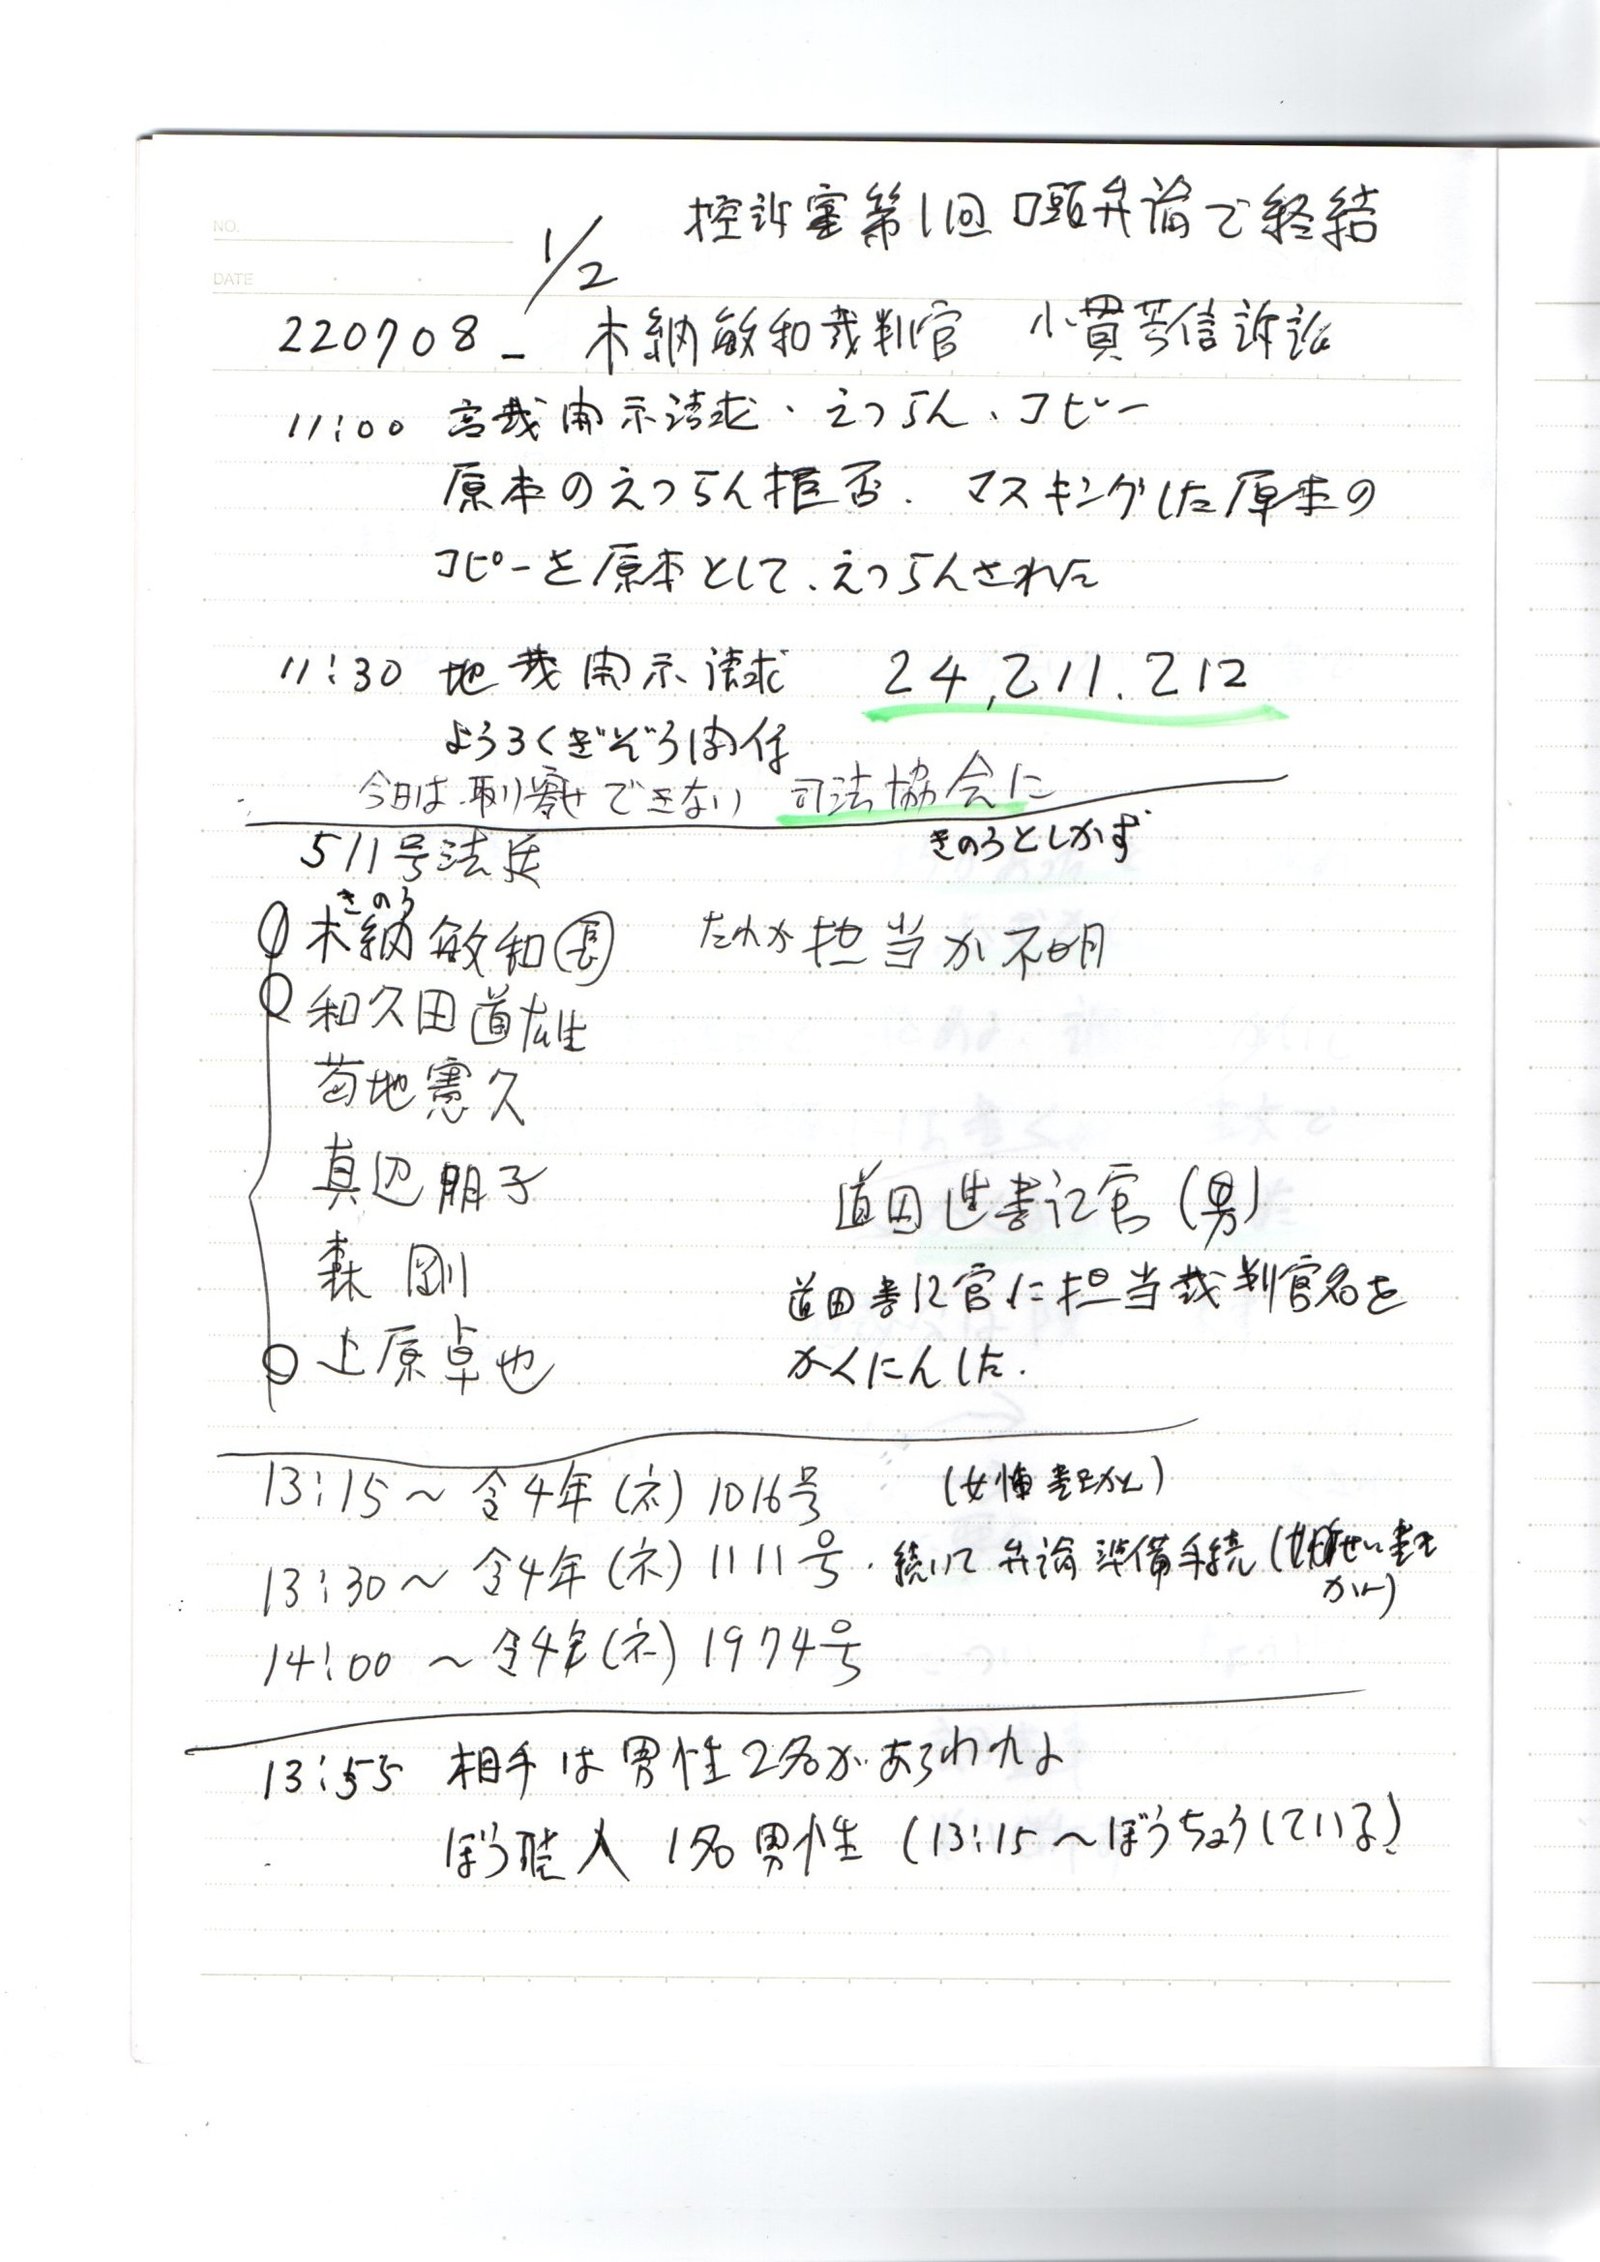 控訴審第1回口頭弁論で終結
NO.
1/2
DATE
220708_ 木納敏和裁判官 小貫芳信訴訟
11:00 高裁開示請求、えつらん、コピー
原本のえつらん拒否. マスキングした原本の
コピーを原本として、えつらんされた
11:30 地裁開示請求 24,211.212
ようろくぎぞう関係
今日は、取り寄せできない 司法協会に
511号法廷 きのうとしかず
きのう
木納敏和㊐ だれが担当か不明
和久田道雄
菊地憲久
真辺朋子
道田 書記官(男)
森 剛
道田書記官に担当裁判官名を
上原卓也 かくにんした.
13:15〜令4年(ネ)1016号 (女性書記かん)
13:30〜令4年(ネ)1111号. 続いて弁論準備手続(女せい書記
かん)
14:00〜令4年(ネ)1974号
13:55 相手は男性2名があらわれよ
ぼう聴人 1名男性 (13:15〜ぼうちょうしている)